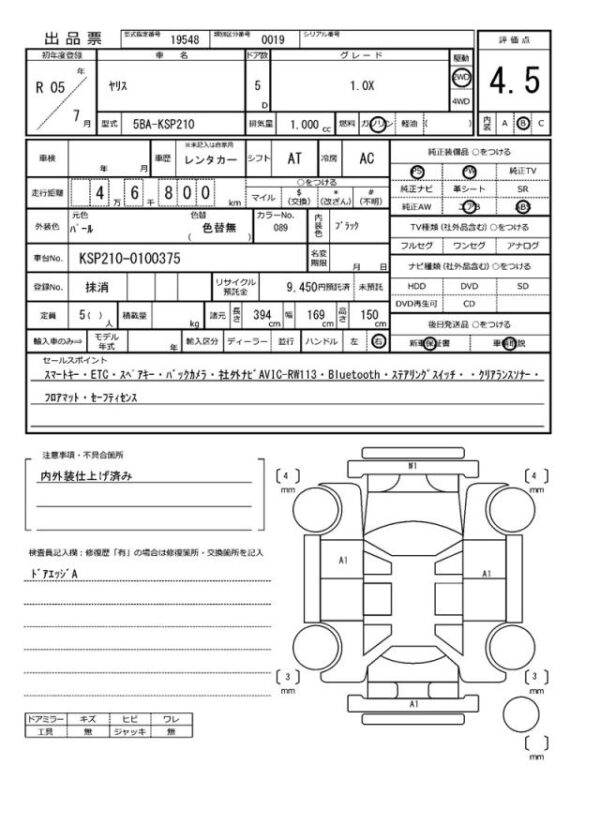 出品票 型式指定番号 19548 類別区分番号 0019 シリアル番号
評価点
初年度登録 車名 ドア数 グレード 駆動
R 05 年 7 月 ヤリス 5 D 1.0X 2WD 4WD
4.5
型式 5BA-KSP210 排気量 1,000 cc 燃料 ガソリン 軽油 ( ) 内装 A B C
車検 年 月 車歴 ※未記入は自家用 レンタカー シフト AT 冷房 AC
純正装備品 ○をつける
PS PW 純正TV
走行距離 4 万 6 千 800 km ○をつける マイル $ (交換) * (改ざん) # (不明)
純正ナビ 革シート SR
純正AW エアB ABS
外装色 元色 パール 色替 ( 色替無 ) カラーNo. 089 内装色 ブラック
TV種類 (社外品含む) ○をつける
フルセグ ワンセグ アナログ
車台No. KSP210-0100375 名変期限 月 日
ナビ種類 (社外品含む) ○をつける
HDD DVD SD
登録No. 抹消 リサイクル預託金 9,450円預託済 未預託
DVD再生可 CD
定員 5( ) 人 積載量 kg 諸元 長さ 394 cm 幅 169 cm 高さ 150 cm
後日発送品 ○をつける
輸入車のみ⇒ モデル年式 年 輸入区分 ディーラー 並行 ハンドル 左 右
新車保証書 車輌取説
セールスポイント
スマートキー・ETC・スペアキー・バックカメラ・社外ナビAVIC-RW113・Bluetooth・ステアリングスイッチ・・クリアランスソナー・
フロアマット・セーフティセンス
注意事項・不具合箇所
内外装仕上げ済み
検査員記入欄:修復歴「有」の場合は修復箇所・交換箇所を記入
ドアエッジA
W1
〔 4 〕 mm 〔 4 〕 mm
A1 A1
〔 3 〕 mm 〔 3 〕 mm
A1
〔 〕 mm
ドアミラー キズ ヒビ ワレ
工具 無 ジャッキ 無